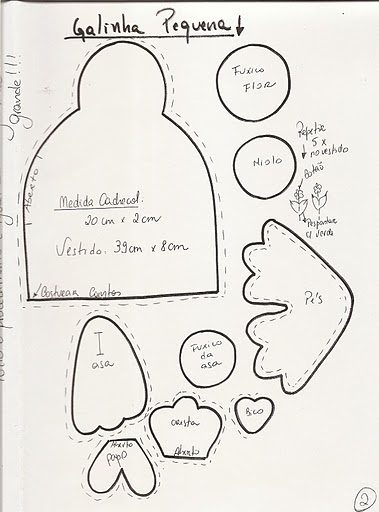 Galinha Pequena
grande!!!
Fuxico
FLOR
Miolo
Repetir
5 x
no vestido
Botão
Pespontar
c/ verde
Aberto
Medida Cachecol:
20 cm x 2 cm
Vestido: 39 cm x 8 cm
Costurar Cantos
Pés
I
asa
Fuxico
da
asa
crista
Aberto
Bico
Aberto
papo
2